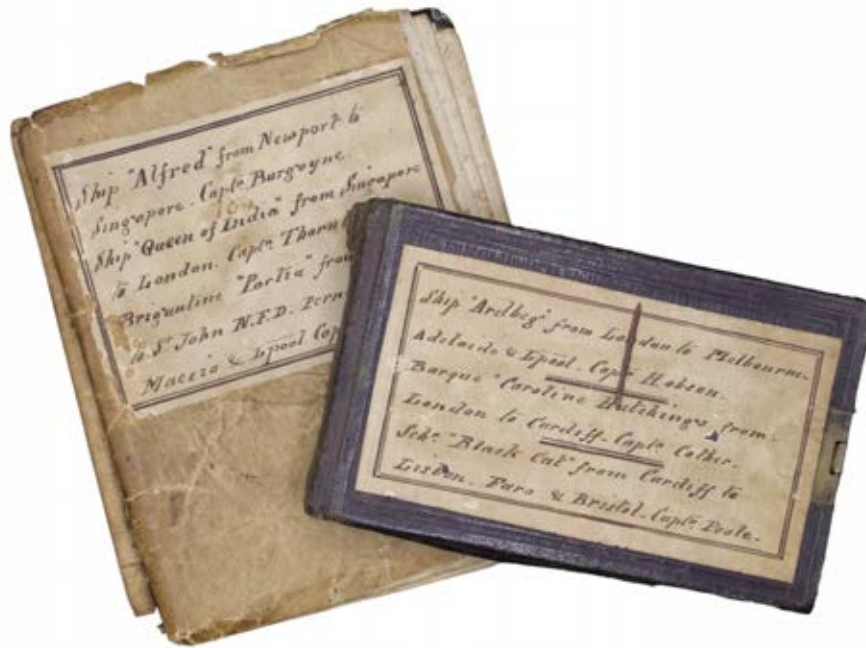 Ship "Alfred" from Newport to
Singapore. Captn. Burgoyne.
Ship "Queen of India" from Singapore
to London. Captn. Thorn
Brigantine "Portia" from
to St. John N.F.D. Pern
Maceio & Lpool Cap
Ship "Ardbeg" from London to Melbourne.
Adelaide & Lpool. Captn. Hobson.
Barque "Caroline Hutchings" from
London to Cardiff. Captn. Colher.
Schr. "Black Cat" from Cardiff to
Lisbon. Faro & Bristol. Captn. Poole.